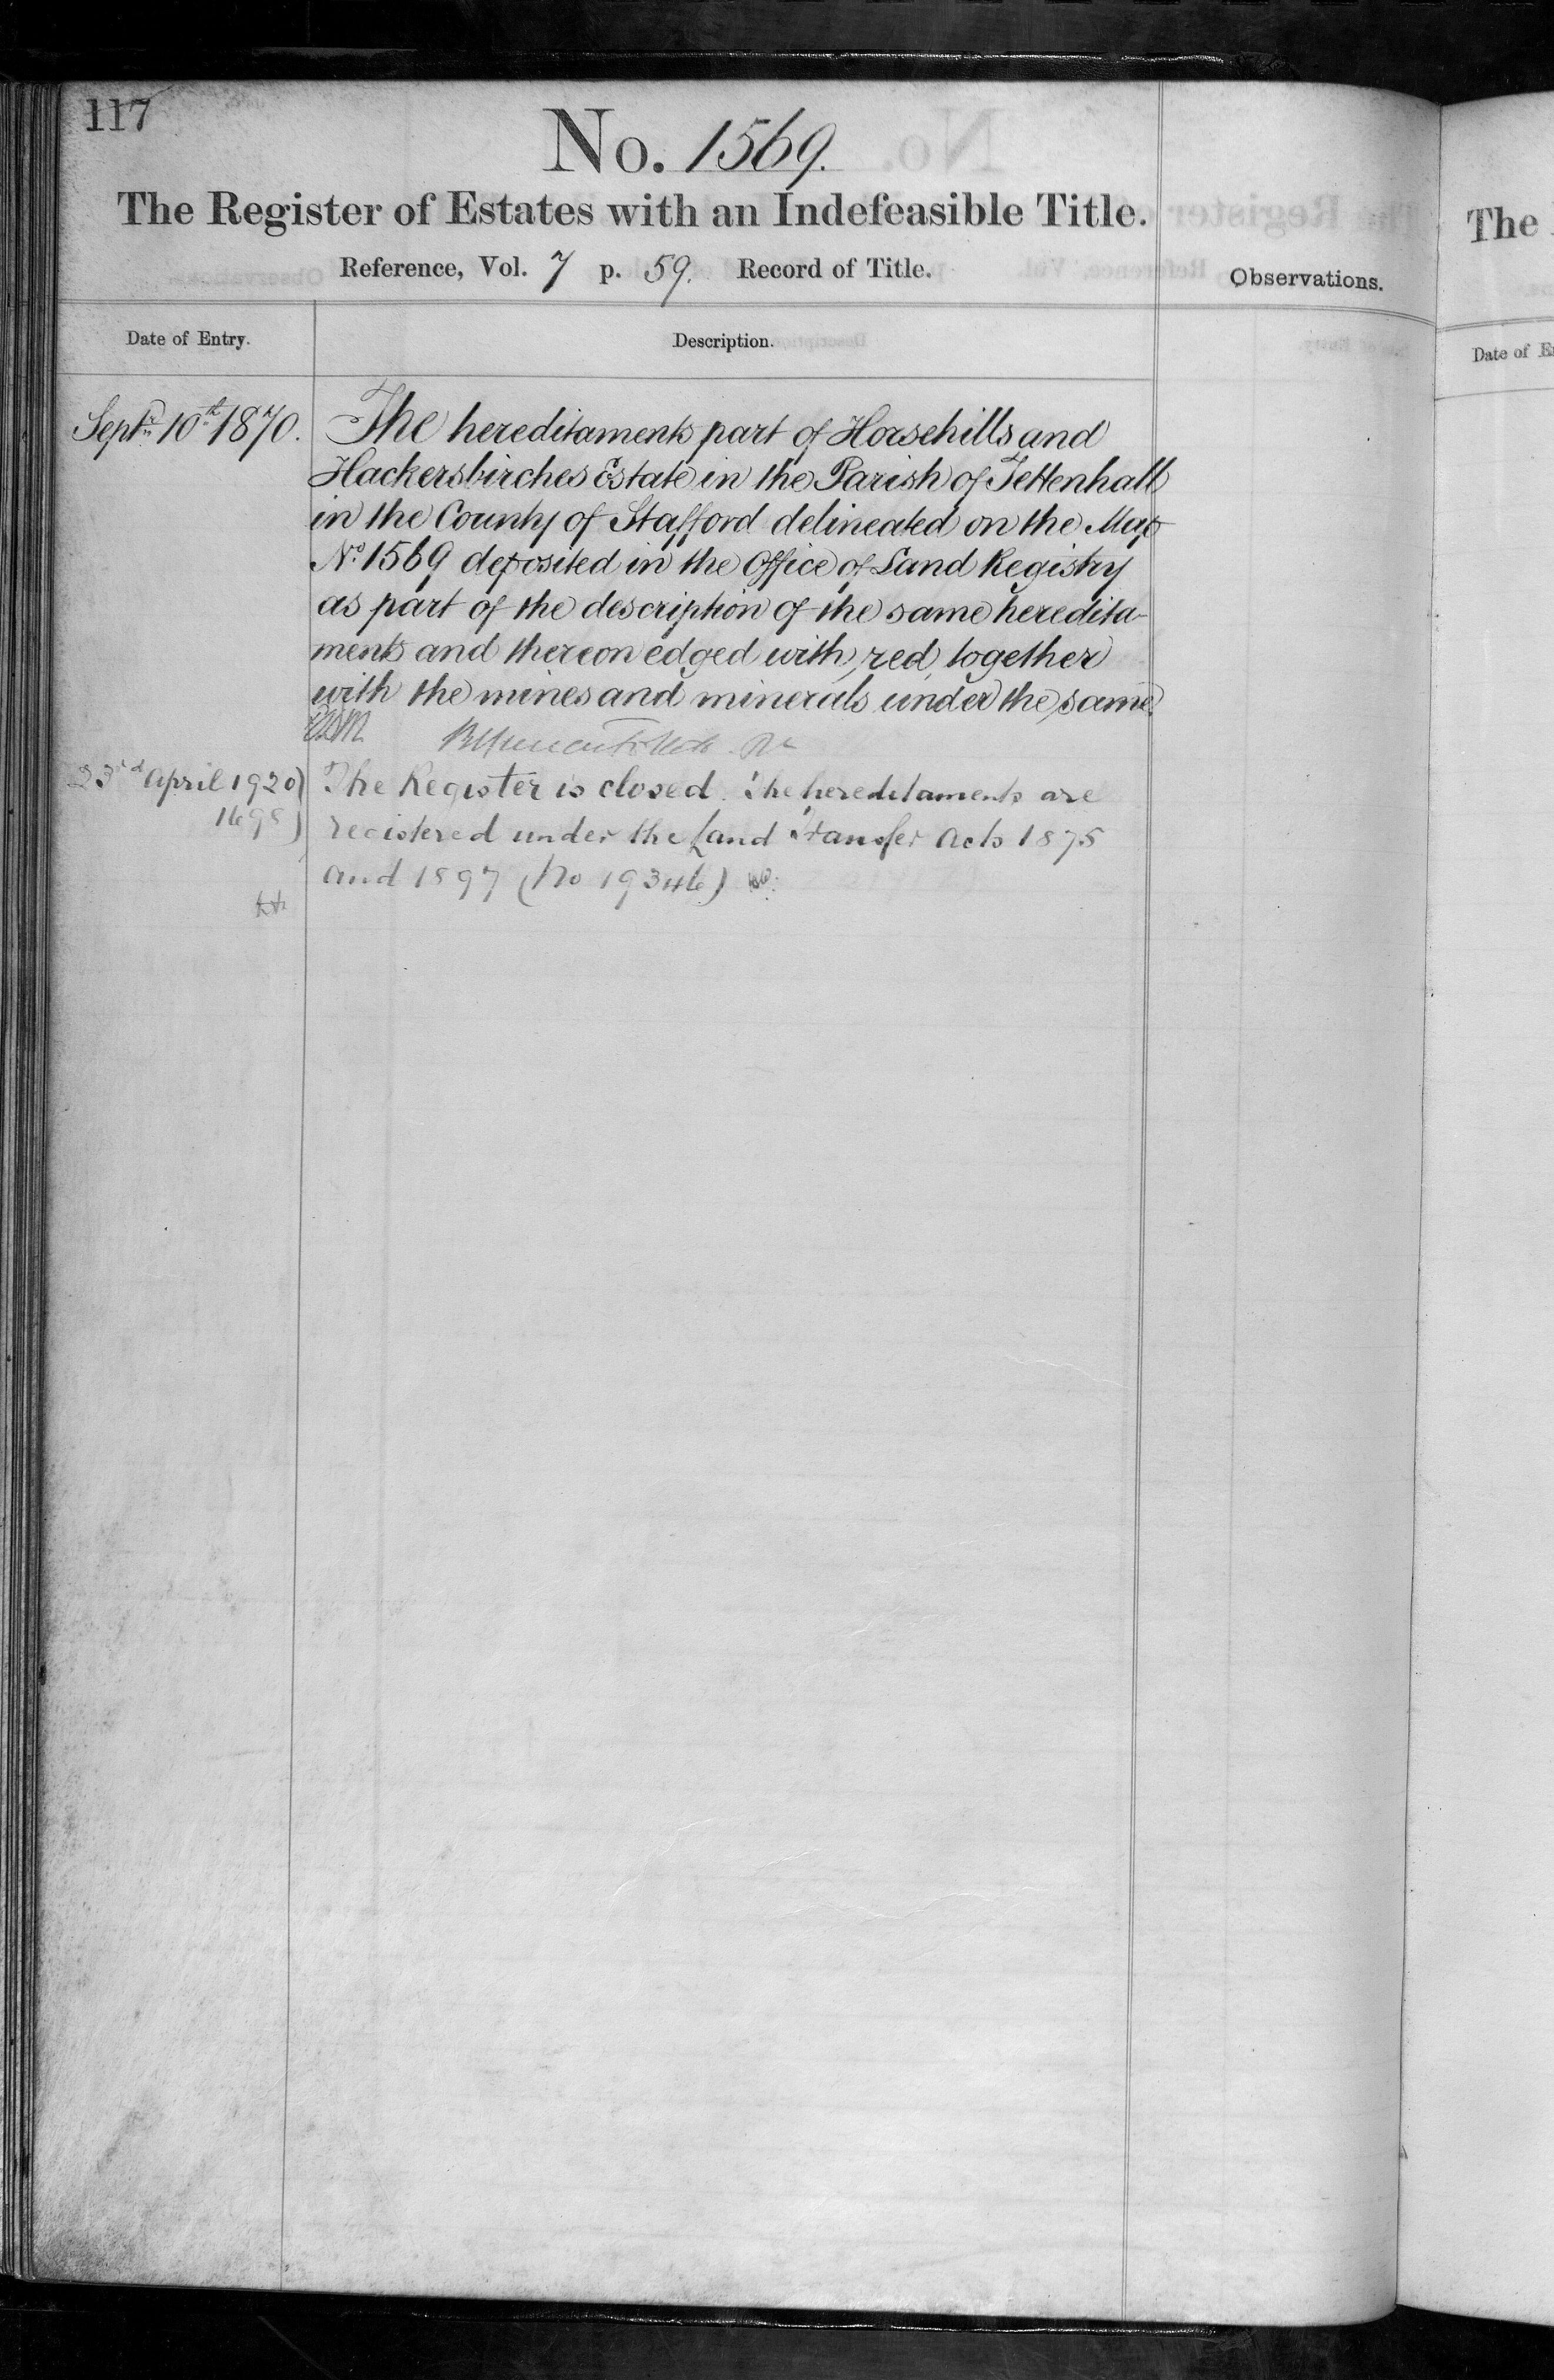 117
No. 1569.
The Register of Estates with an Indefeasible Title.
Reference, Vol. 7 p. 59. Record of Title.
Observations.
Date of Entry.
Description.
Septr. 10th 1870.
The hereditaments part of Horsehills and
Hackersbirches Estate in the Parish of Tettenhall
in the County of Stafford delineated on the Map
No. 1569 deposited in the Office of Land Registry
as part of the description of the same heredita-
ments and thereon edged with red, together
with the mines and minerals under the same.
23rd April 1920
The Register is closed. The hereditaments are
registered under the Land Transfer Acts 1875
and 1897 (No 19346)
The
Date of